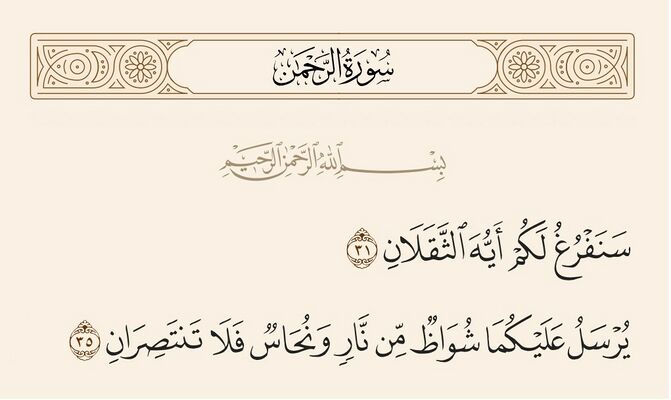 سُورَةُ الرَّحْمَٰن
بِسْمِ ٱللَّهِ ٱلرَّحْمَٰنِ ٱلرَّحِيمِ
سَنَفْرُغُ لَكُمْ أَيُّهَ ٱلثَّقَلَانِ ٣١
يُرْسَلُ عَلَيْكُمَا شُوَاظٌ مِّن نَّارٍ وَنُحَاسٌ فَلَا تَنتَصِرَانِ ٣٥